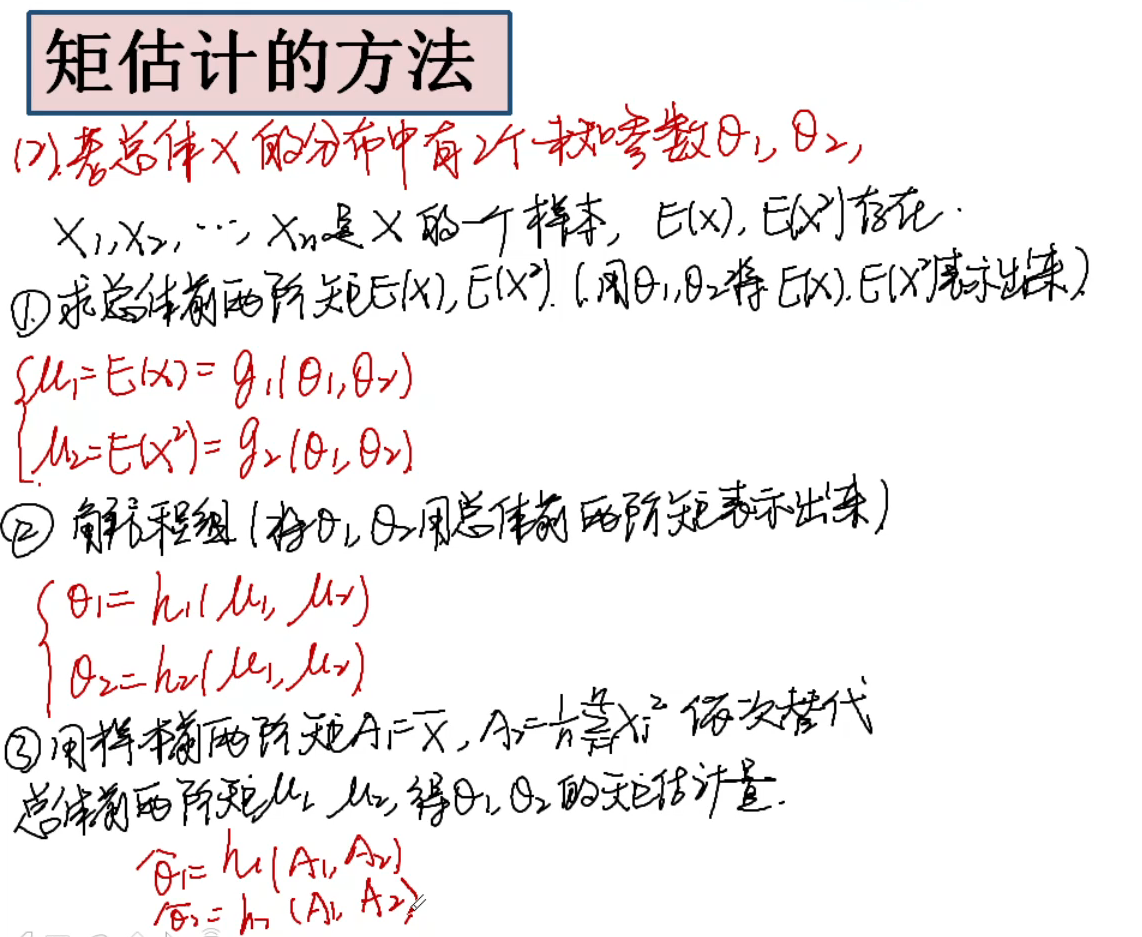 矩估计的方法
(2).若总体X的分布中有2个未知参数θ₁, θ₂,
X₁,X₂, ⋯, Xₙ是X的一个样本, E(X), E(X²)存在.
①求总体前两阶矩E(X), E(X²). (用θ₁,θ₂将E(X).E(X²)表示出来)
{μ₁=E(X)=g₁(θ₁,θ₂)
μ₂=E(X²)=g₂(θ₁,θ₂)
② 解方程组(将θ₁, θ₂用总体前两阶矩表示出来)
{θ₁=h₁(μ₁, μ₂)
θ₂=h₂(μ₁, μ₂)
③用样本前两阶矩A₁=X̄, A₂=1/n ∑ᵢ₌₁ⁿ Xᵢ² 依次替代
总体前两阶矩μ₁ μ₂, 得θ₁, θ₂的矩估计量.
θ̂₁=h₁(A₁, A₂)
θ̂₂=h₂(A₁, A₂)